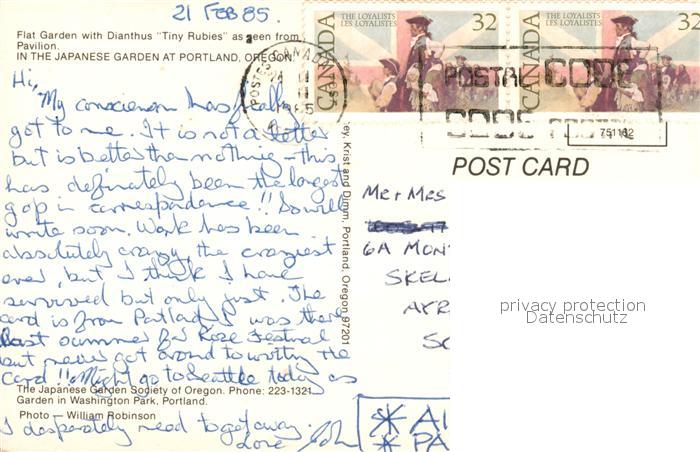 21 FEB 85.
Flat Garden with Dianthus "Tiny Rubies" as seen from
Pavilion.
IN THE JAPANESE GARDEN AT PORTLAND, OREGON.
Hi,
My conscience has finally
got to me. It is not a letter
but is better than nothing – this
has definately been the longest
gap in correspondance!! So will
write soon. Work has been
absolutely crazy, the craziest
ever, but I think I have
survived but only just. The
card is from Portland, I was there
last summer for Rose Festival
but never got around to writing the
card!! Might go to Seattle today as
The Japanese Garden Society of Oregon. Phone: 223-1321
Garden in Washington Park, Portland.
Photo – William Robinson
I desperately need to get away.
Love John
ey, Krist and Dimm, Portland, Oregon 97201
CANADA
THE LOYALISTS
LES LOYALISTES
32
CANADA
THE LOYALISTS
LES LOYALISTES
32
POSTES CANADA
POSTAL CODE
CODE POSTAL
751182
POST CARD
MR + MRS
6A MON
SKEL
AYR
SC
privacy protection
Datenschutz
* AI
* PA